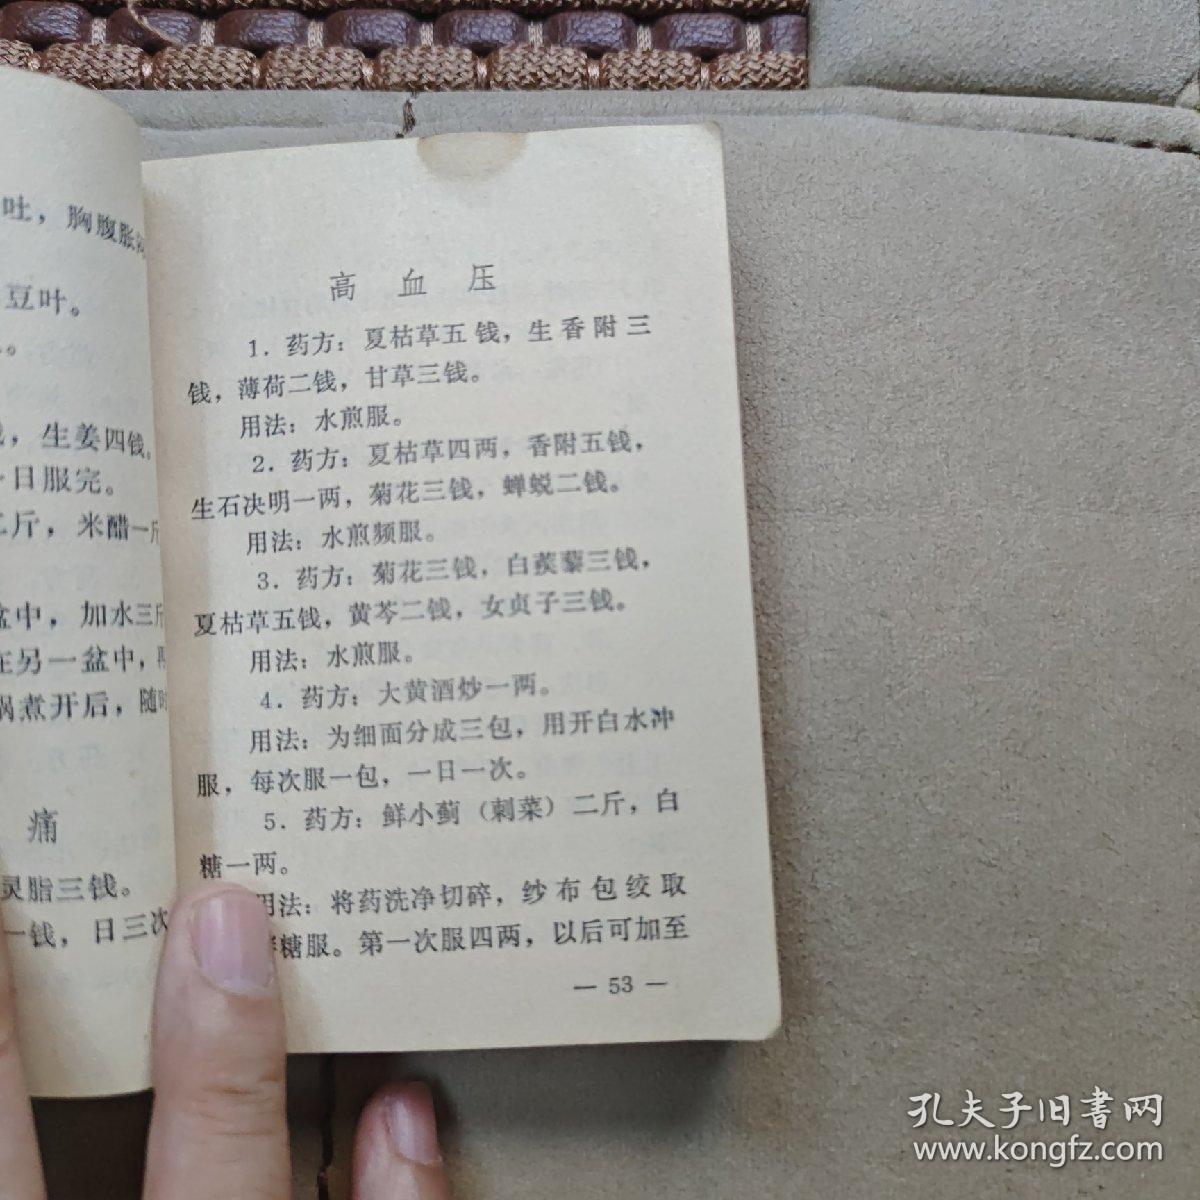 吐，胸腹胀
豆叶。
，生姜四钱。
日服完。
斤，米醋一斤
盆中，加水三斤
在另一盆中，
锅煮开后，随时
痛
灵脂三钱。
一钱，日三次
高血压
1．药方：夏枯草五钱，生香附三
钱，薄荷二钱，甘草三钱。
用法：水煎服。
2．药方：夏枯草四两，香附五钱，
生石决明一两，菊花三钱，蝉蜕二钱。
用法：水煎频服。
3．药方：菊花三钱，白蒺藜三钱，
夏枯草五钱，黄芩二钱，女贞子三钱。
用法：水煎服。
4．药方：大黄酒炒一两。
用法：为细面分成三包，用开白水冲
服，每次服一包，一日一次。
5．药方：鲜小蓟（刺菜）二斤，白
糖一两。
用法：将药洗净切碎，纱布包绞取
糖服。第一次服四两，以后可加至
— 53 —
孔夫子旧书网
www.kongfz.com